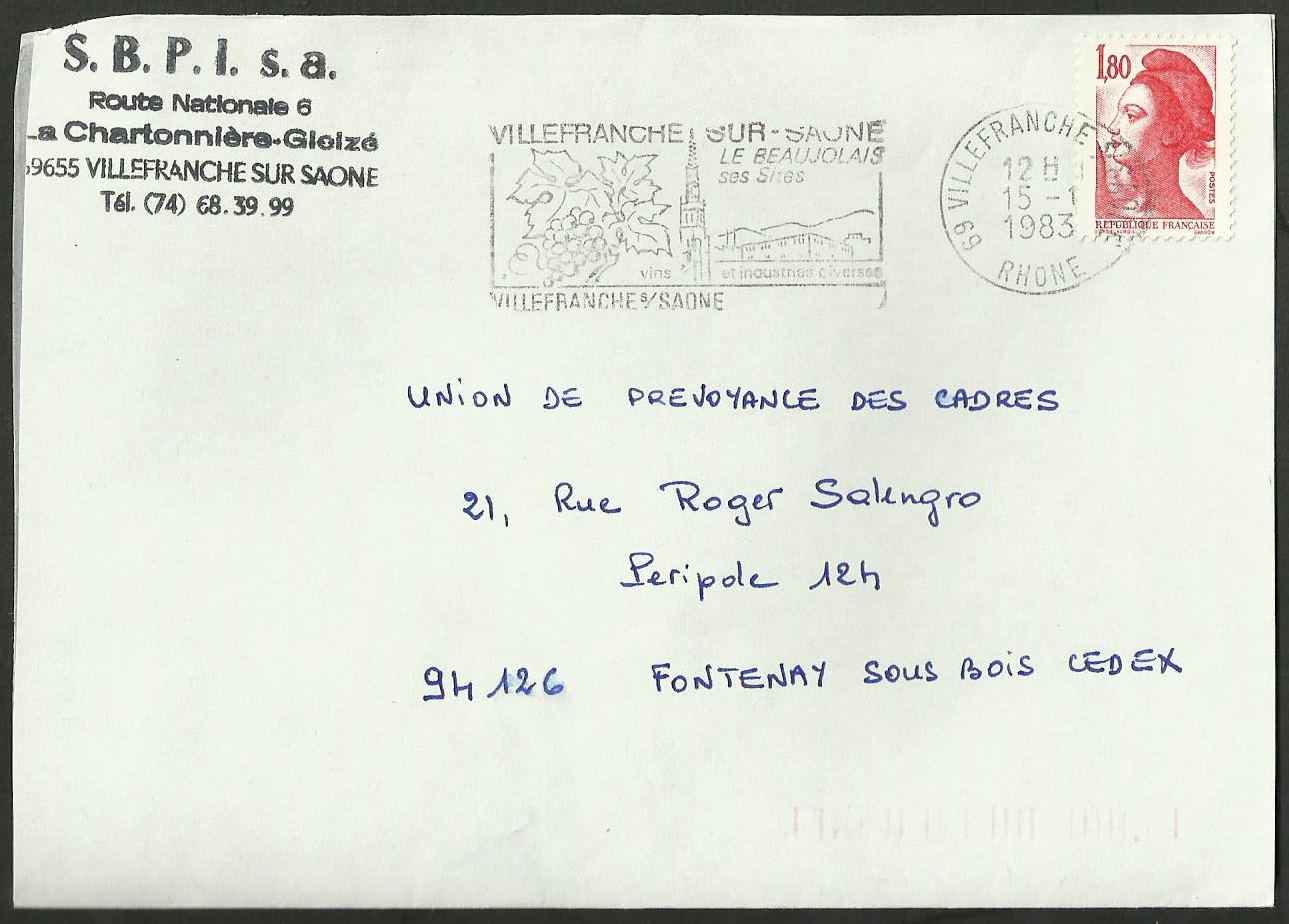 S. B. P. I. s. a.
Route Nationale 6
La Chartonnière-Gleizé
69655 VILLEFRANCHE SUR SAONE
Tél. (74) 68.39.99
VILLEFRANCHE SUR-SAONE
LE BEAUJOLAIS
ses Sites
vins et industries diverses
VILLEFRANCHE S/SAONE
69 VILLEFRANCHE
12 H
15 -1
1983
RHONE
1,80
POSTES
REPUBLIQUE FRANÇAISE
GANDON
UNION DE PREVOYANCE DES CADRES
21, Rue Roger Salengro
Peripole 124
94126 FONTENAY SOUS BOIS CEDEX